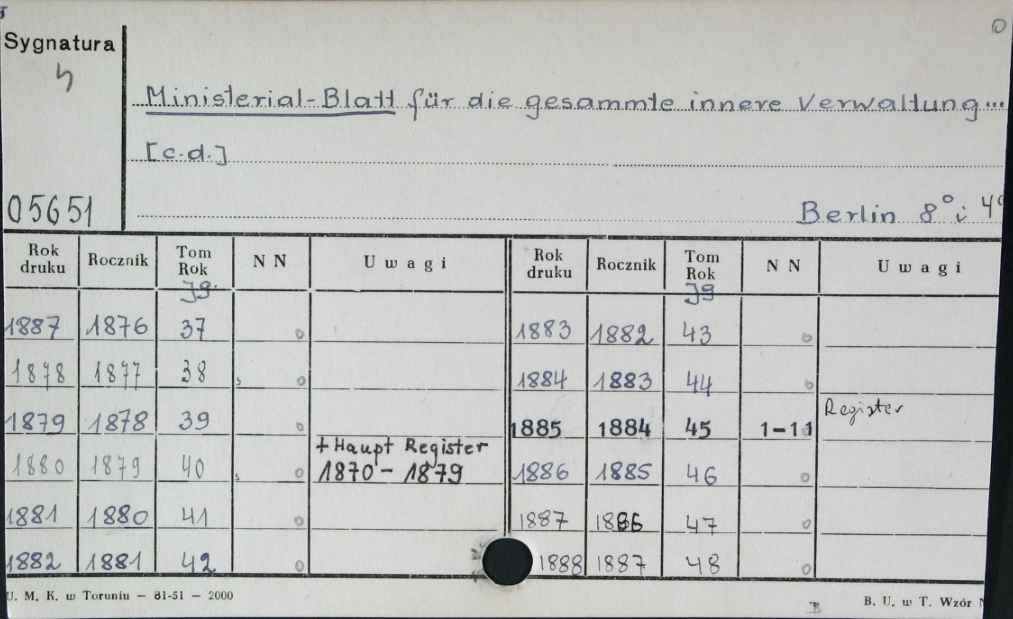 Sygnatura
Ministerial-Blatt für die gesammte innere Verwaltung...
[c.d.]
05651
Berlin 8° i 4°
Rok druku Rocznik Tom Rok NN Uwagi Rok druku Rocznik Tom Rok NN Uwagi
Jg. Jg
1887 1876 37 o 1883 1882 43 o
1878 1877 38 o 1884 1883 44 o
1879 1878 39 o 1885 1884 45 1-11 Register
1880 1879 40 o + Haupt Register 1870-1879 1886 1885 46 o
1881 1880 41 o 1887 1886 47 o
1882 1881 42 o 1888 1887 48 o
U. M. K. w Toruniu — 81-51 — 2000
B. U. w T. Wzór